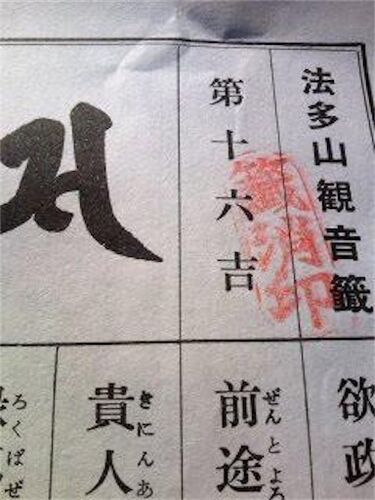 法多山観音籤
第十六吉
欲政
前途
ぜんとよろ
貴人
きにんあ
ろくばぜ